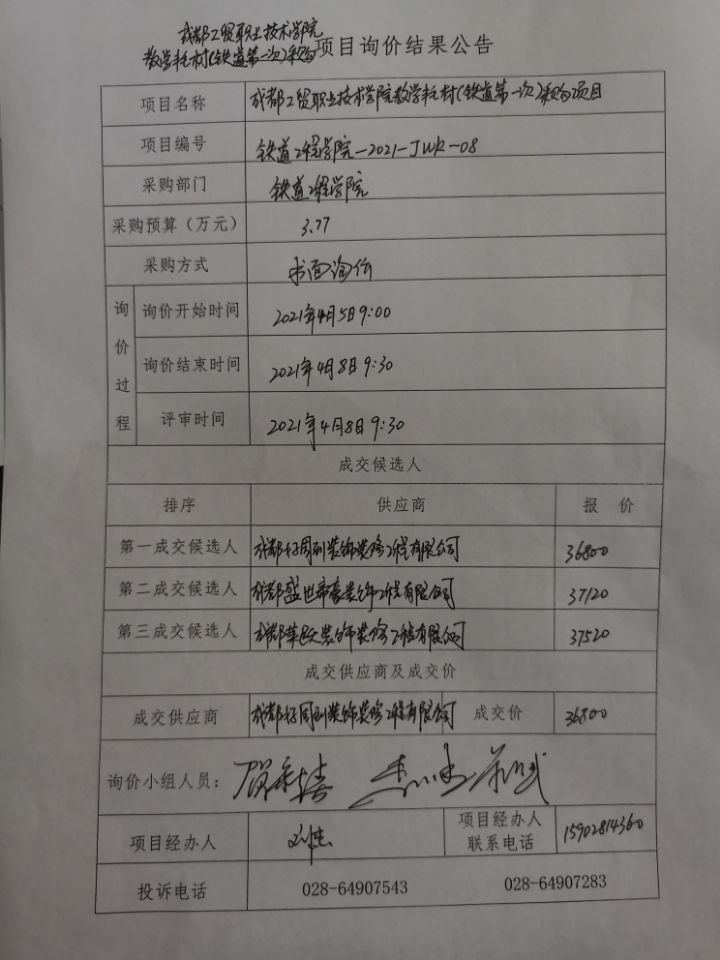 成都工贸职业技术学院
教学耗材(铁道第一次)采购项目询价结果公告
项目名称 成都工贸职业技术学院教学耗材(铁道第一次)采购项目
项目编号 铁道工程学院-2021-JWK-08
采购部门 铁道工程学院
采购预算（万元） 3.77
采购方式 书面询价
询价过程
询价开始时间 2021年4月5日9:00
询价结束时间 2021年4月8日9:30
评审时间 2021年4月8日9:30
成交候选人
排序 供应商 报 价
第一成交候选人 成都 装饰装修工程有限公司 36800
第二成交候选人 成都盛世帝豪装饰工程有限公司 37120
第三成交候选人 成都华欧装饰装修工程有限公司 37520
成交供应商及成交价
成交供应商 成都 装饰装修工程有限公司 成交价 36800
询价小组人员：
项目经办人 项目经办人
联系电话 15902814360
投诉电话 028-64907543 028-64907283